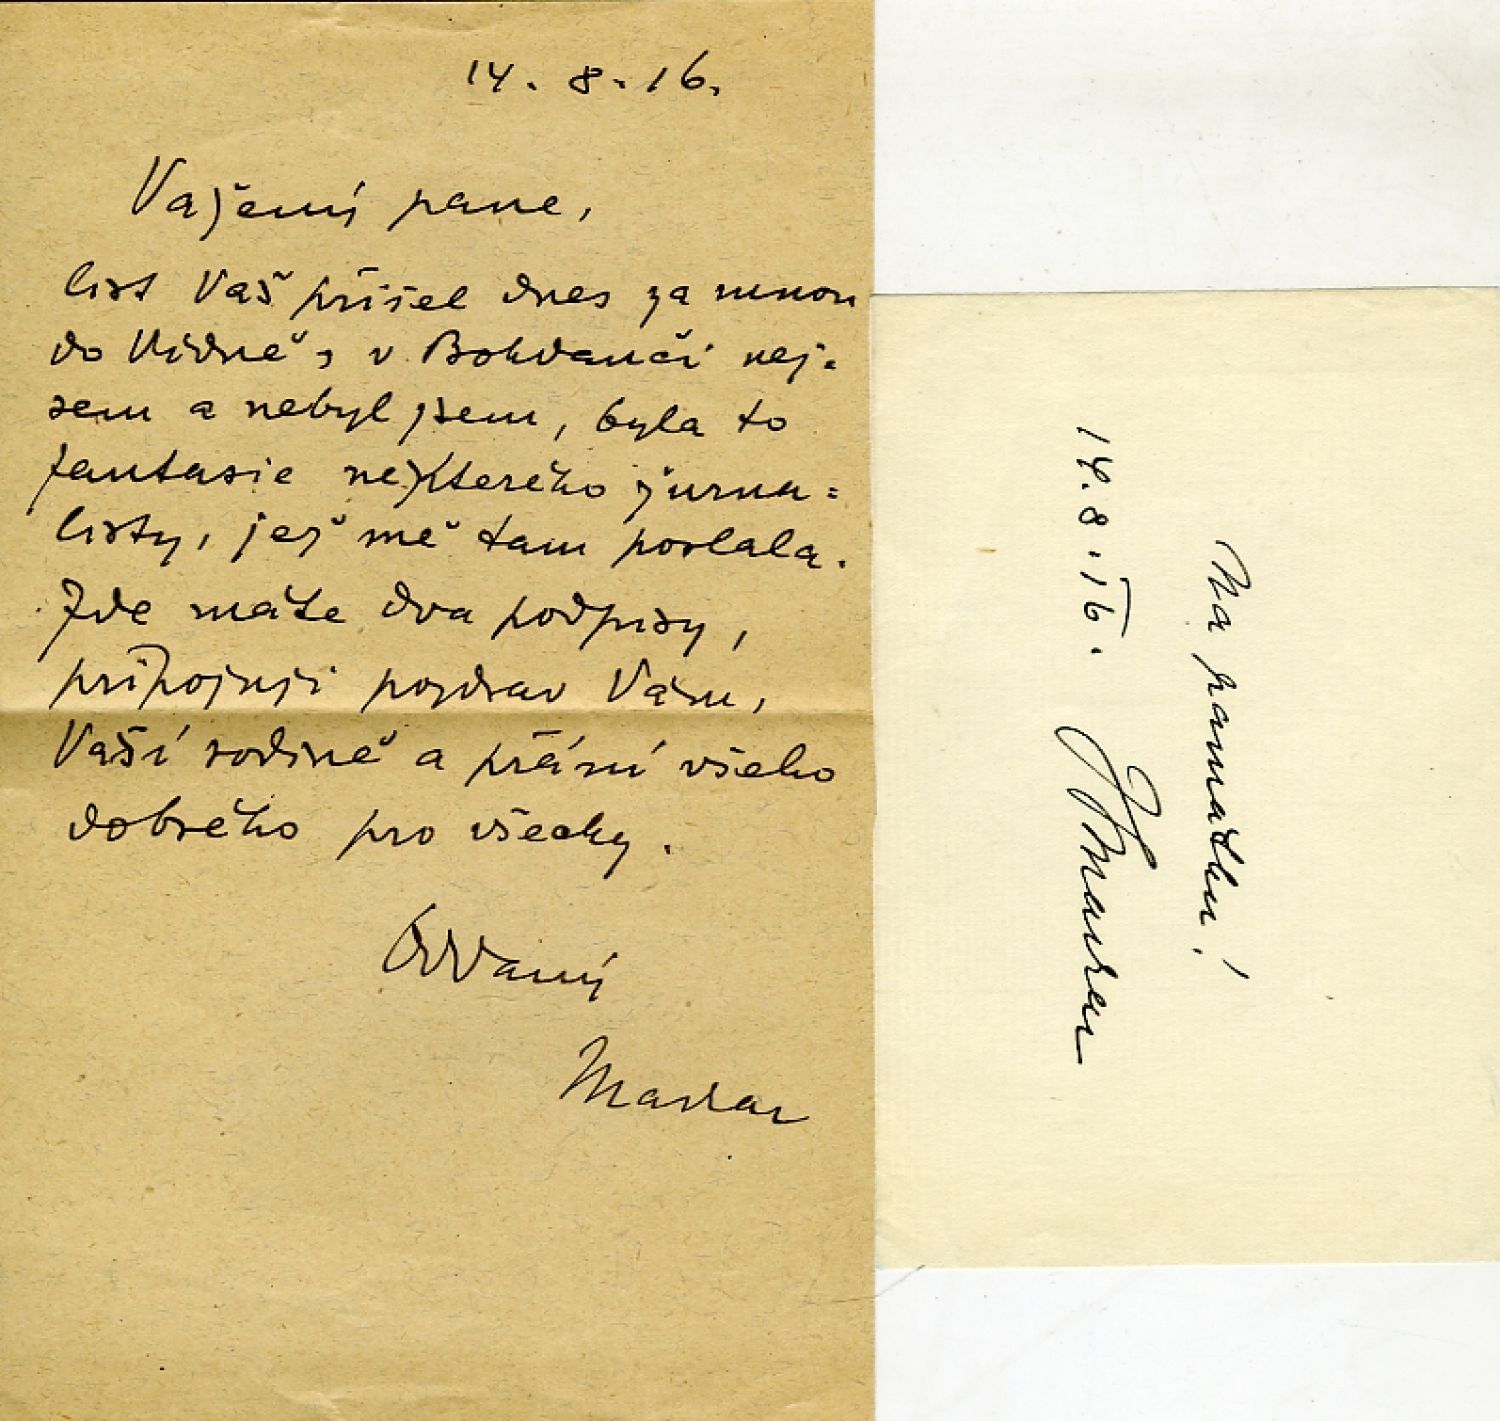 14. 8. 16.
Vážený pane,
list Váš přišel dnes za mnou
do Vídně, v Bohdanči nej-
sem a nebyl jsem, byla to
fantasie některého žurna-
listy, jež mě tam poslala.
Zde máte dva podpisy,
připojuji pozdrav Vám,
Vaší rodině a přání všeho
dobrého pro všecky.
Oddaný
Machar
Na památku!
14. 8. 16. JSMachar